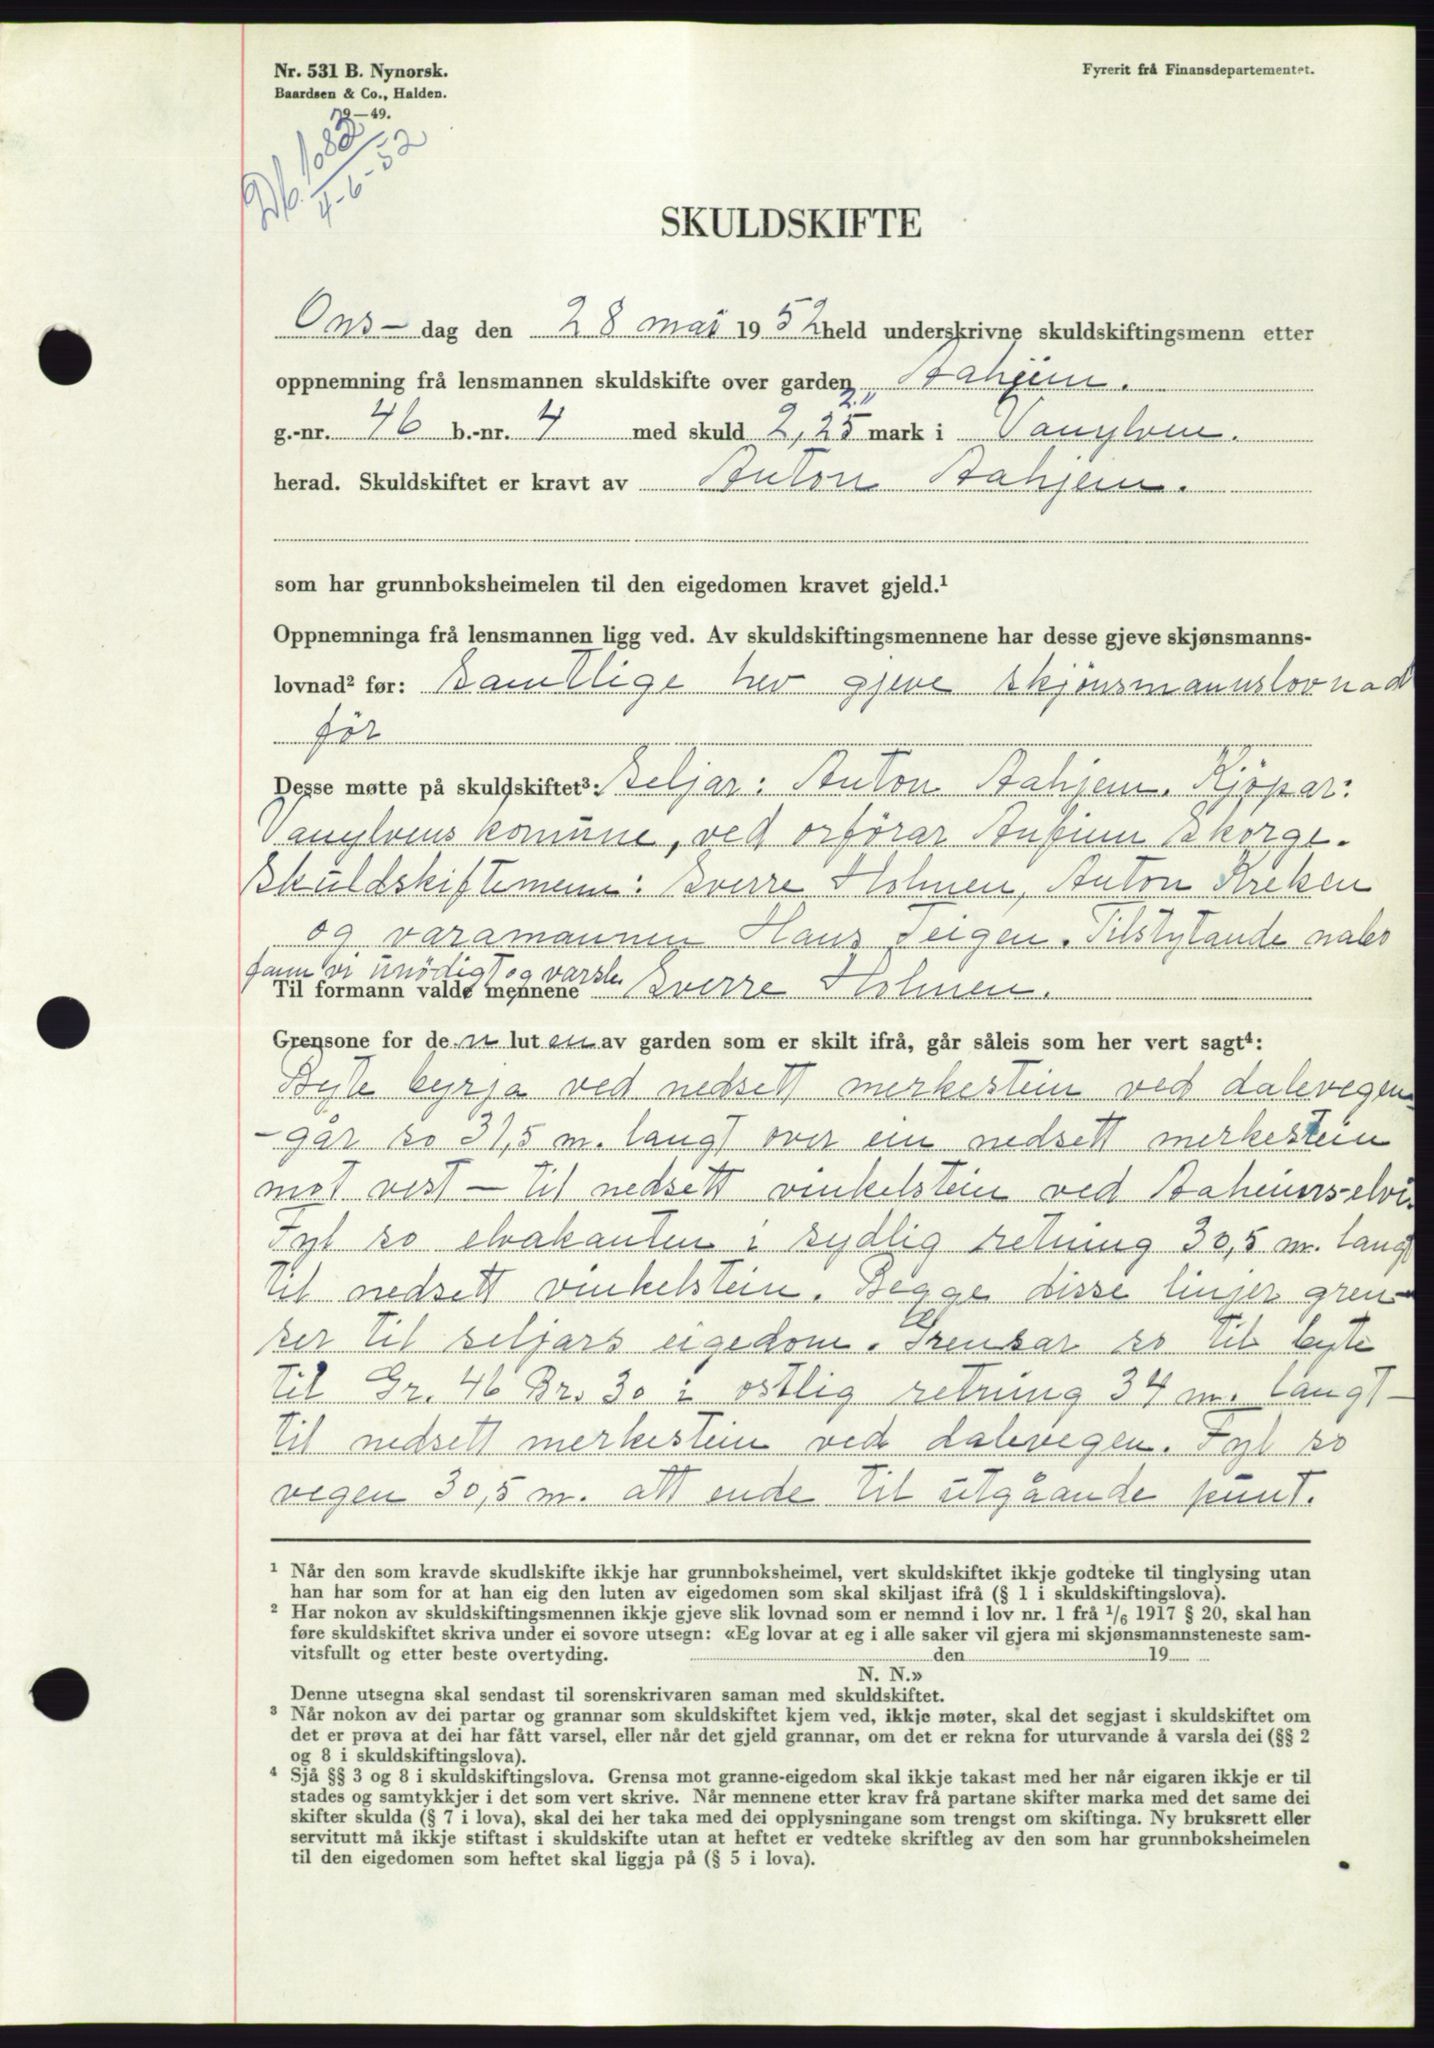 Nr. 531 B. Nynorsk.
Fyrerit frå Finansdepartementet.
Baardsen & Co., Halden.
9—49.
Db. 1082
4-6-52
SKULDSKIFTE
Ons- dag den 28 mai 1952 held underskrivne skuldskiftingsmenn etter
oppnemning frå lensmannen skuldskifte over garden Aaheim.
2."
g.-nr. 46 b.-nr. 4 med skuld 2,25 mark i Vanylven.
herad. Skuldskiftet er kravt av Anton Aahjem.
som har grunnboksheimelen til den eigedomen kravet gjeld.¹
Oppnemninga frå lensmannen ligg ved. Av skuldskiftingsmennene har desse gjeve skjønsmanns-
lovnad² før: Samtlige hev gjeve skjönsmannslovnad
för
Desse møtte på skuldskiftet³: Seljar: Anton Aahjem. Kjöpar:
Vanylvens komune, ved orförar Anfinn Skorge.
Skuldskiftemenn: Sverre Holmen, Anton Kreken
og varamannen Hans Teigen. Tilstytande nabo
fann vi unödigt og varsle
Til formann valde mennene Sverre Holmen.
Grensone for den luten av garden som er skilt ifrå, går såleis som her vert sagt⁴:
Byte byrja ved nedsett merkestein ved dalevegen-
- går so 31,5 m. langt over ein nedsett merkestein
mot vest - til nedsett vinkelstein ved Aaheims-elvi.
Fyl so elvakanten i sydlig retning 30,5 m. langt
til nedsett vinkelstein. Begge disse linjer gren-
ser til seljars eigedom. Grensar so til byte
til Gr. 46 Br. 30 i ostlig retning 34 m. langt -
til nedsett merkestein ved dalevegen. Fyl so
vegen 30,5 m. att ende til utgåande punt.
¹ Når den som kravde skudlskifte ikkje har grunnboksheimel, vert skuldskiftet ikkje godteke til tinglysing utan
han har som for at han eig den luten av eigedomen som skal skiljast ifrå (§ 1 i skuldskiftingslova).
² Har nokon av skuldskiftingsmennen ikkje gjeve slik lovnad som er nemnd i lov nr. 1 frå ¹/₆ 1917 § 20, skal han
føre skuldskiftet skriva under ei sovore utsegn: «Eg lovar at eg i alle saker vil gjera mi skjønsmannsteneste sam-
vitsfullt og etter beste overtyding. den 19
N. N.»
Denne utsegna skal sendast til sorenskrivaren saman med skuldskiftet.
³ Når nokon av dei partar og grannar som skuldskiftet kjem ved, ikkje møter, skal det segjast i skuldskiftet om
det er prøva at dei har fått varsel, eller når det gjeld grannar, om det er rekna for uturvande å varsla dei (§§ 2
og 8 i skuldskiftingslova).
⁴ Sjå §§ 3 og 8 i skuldskiftingslova. Grensa mot granne-eigedom skal ikkje takast med her når eigaren ikkje er til
stades og samtykkjer i det som vert skrive. Når mennene etter krav frå partane skifter marka med det same dei
skifter skulda (§ 7 i lova), skal dei her taka med dei opplysningane som trengst om skiftinga. Ny bruksrett eller
servitutt må ikkje stiftast i skuldskifte utan at heftet er vedteke skriftleg av den som har grunnboksheimelen
til den eigedomen som heftet skal liggja på (§ 5 i lova).